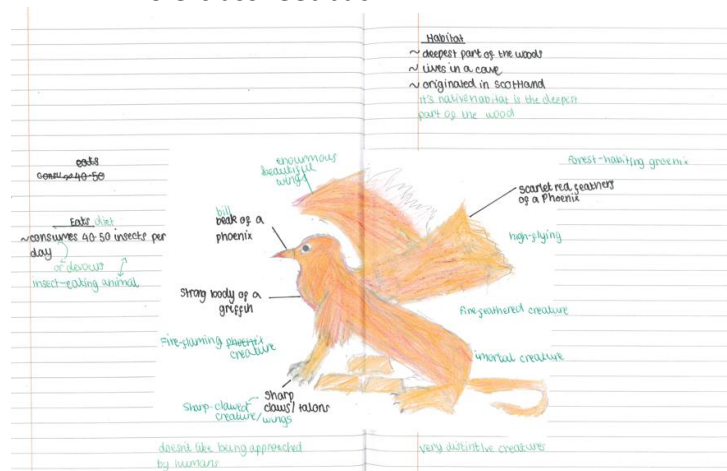 Habitat
~ deepest part of the woods
~ lives in a cave
~ originated in scotland
it's native habitat is the deepest
part of the wood
eats
40-50
Eats diet
~ consumes 40-50 insects per
day
or devour
insect-eating animal
enourmous
beautiful
wings
bill
beak of a
phoenix
Strong body of a
griffin
Fire-flaming phoenix
creature
Sharp
claws/talons
Sharp-clawed
creature/wings
doesn't like being approached
by humans
forest-habiting groenix
scarlet red feathers
of a Phoenix
high-flying
fire-feathered creature
imortal creature
very distinctive creatures